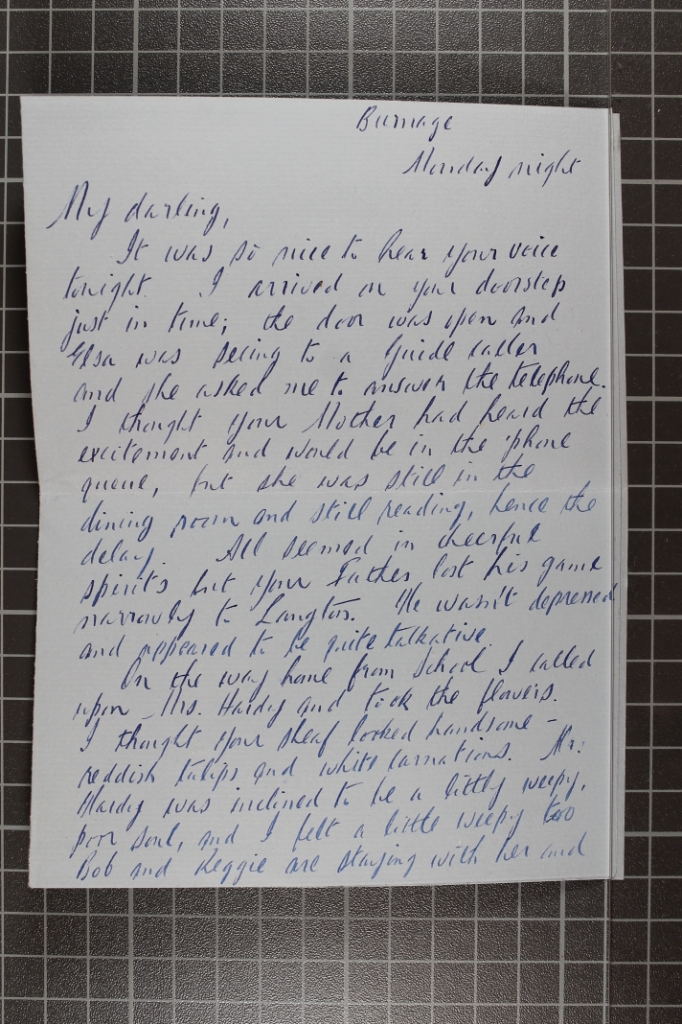 Burnage
Monday night
My darling,
It was so nice to hear your voice
tonight. I arrived on your doorstep
just in time; the door was open and
Elsa was seeing to a Guide caller
and she asked me to answer the telephone.
I thought your Mother had heard the
excitement and would be in the 'phone
queue, but she was still in the
dining room and still reading, hence the
delay. All seemed in cheerful
spirits but your Father lost his game
narrowly to Langton. He wasn't depressed
and appeared to be quite talkative.
On the way home from School I called
upon Mrs. Hardy and took the flowers.
I thought your sheaf looked handsome -
reddish tulips and white carnations. Mrs.
Hardy was inclined to be a little weepy,
poor soul, and I felt a little weepy too
Bob and Reggie are staying with her and